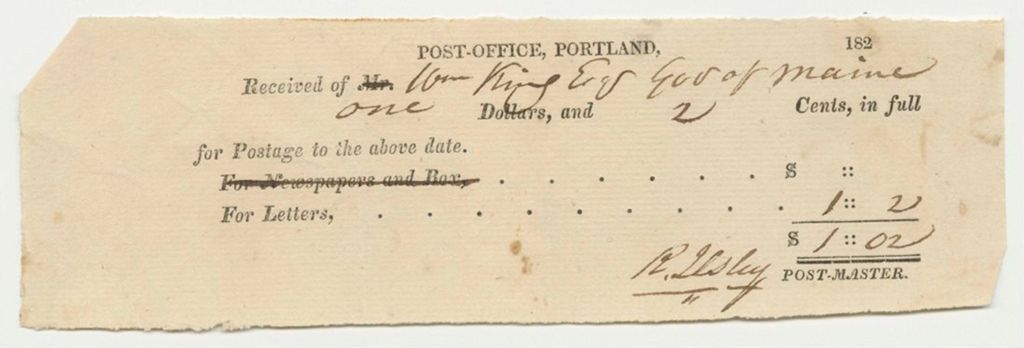 POST-OFFICE, PORTLAND, 182
Received of Mr. Wm King Esq Gov of Maine
one Dollars, and 2 Cents, in full
for Postage to the above date.
For Newspapers and Box, . . . . . . . $ ::
For Letters, . . . . . . . . . 1 :: 2
$ 1 :: 02
R. Ilsley POST-MASTER.